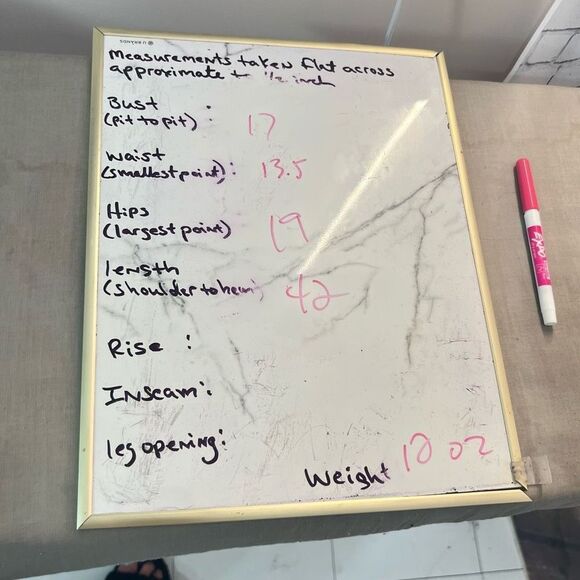 U BRANDS
Measurements taken flat across
approximate + 1/2 inch
Bust :
(pit to pit) 17
waist
(smallest point): 13.5
Hips
(largest point) 19
length
(shoulder to hem) 42
Rise :
Inseam:
leg opening:
Weight 12 oz
EXPO